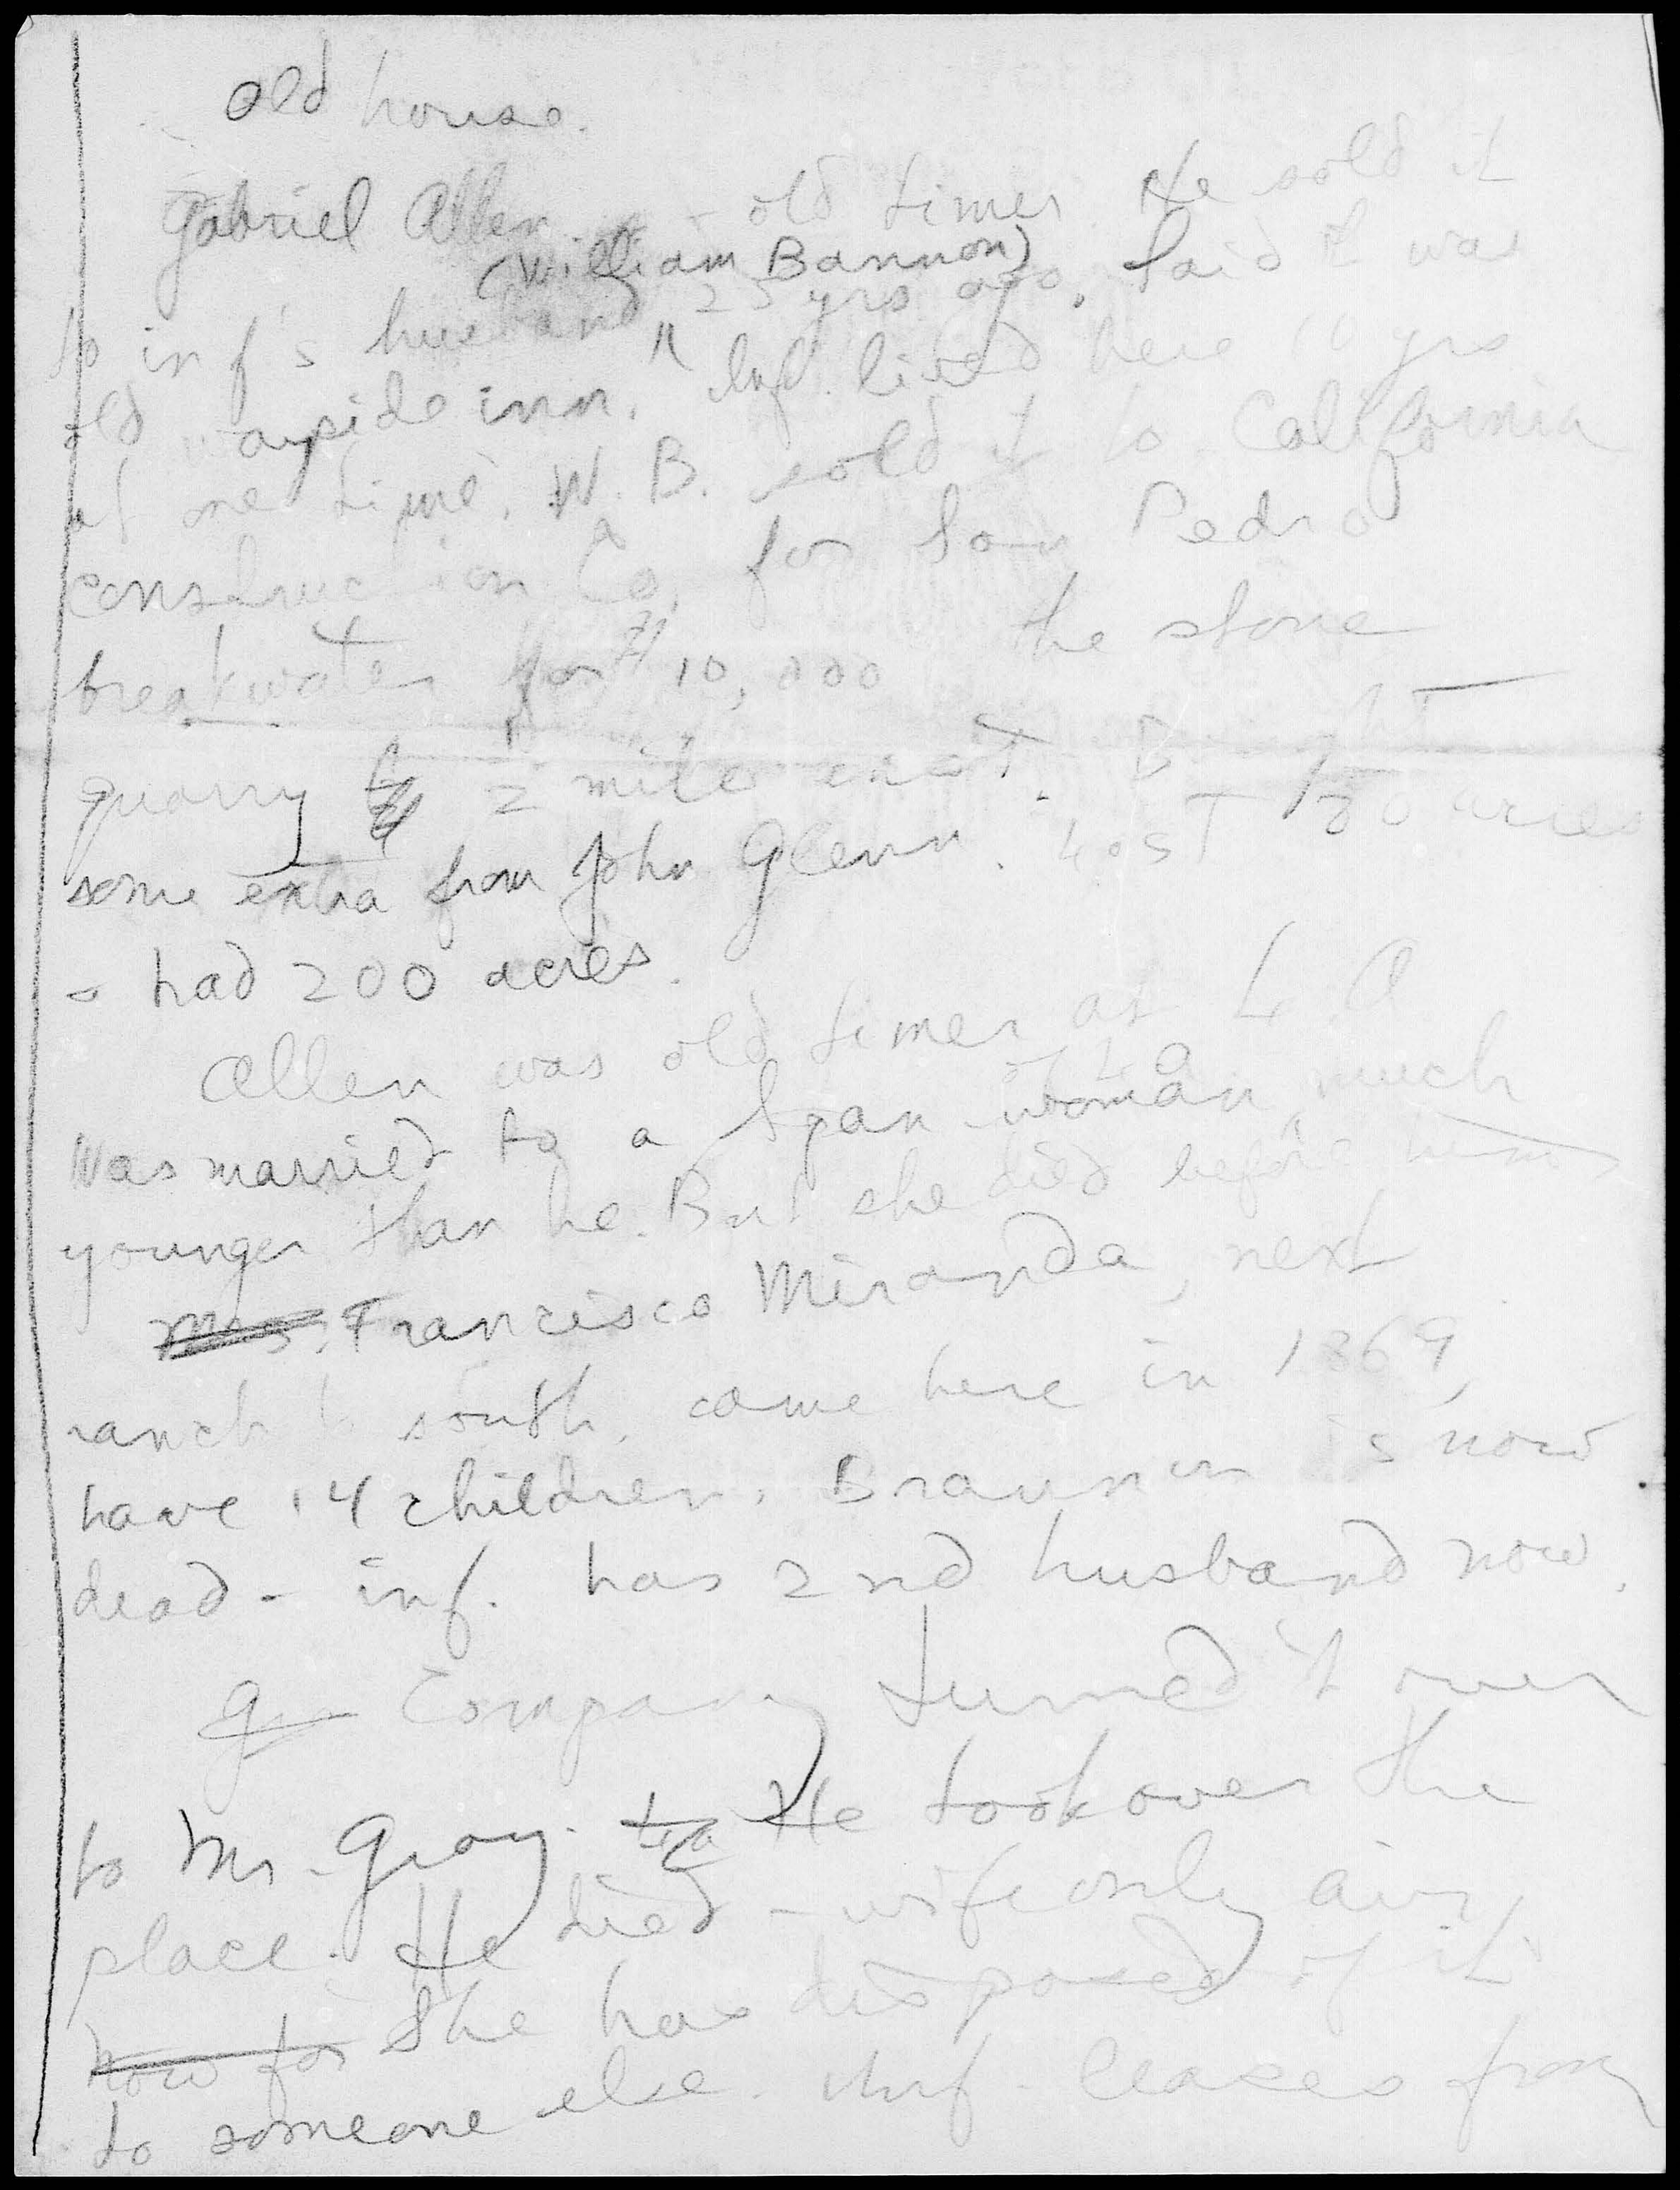 old house.
Gabriel Allen - old timer He sold it
(William Bannon)
to inf's husband 25 yrs ago. Said it was
old wayside inn. " Inf. lived here 16 yrs
at one time. W. B. sold it to California
Construction Co. for San Pedro
breakwater for $10,000 the stone
quarry 1/2 mile east. Bought
some extra from John Glenn. Lost 120 acres
- had 200 acres.
Allen was old timer at L A
of L A
Was married to a Span woman, much
younger than he. But she died before him
Mrs. Francisco Miranda, next
ranch to south, came here in 1869,
have 14 children. Brannon is now
dead - inf. has 2nd husband now.
Company turned it over
to Mr. Gray. He took over the
place. He died - wife only
now for She has disposed of it
to someone else. Inf. leases from